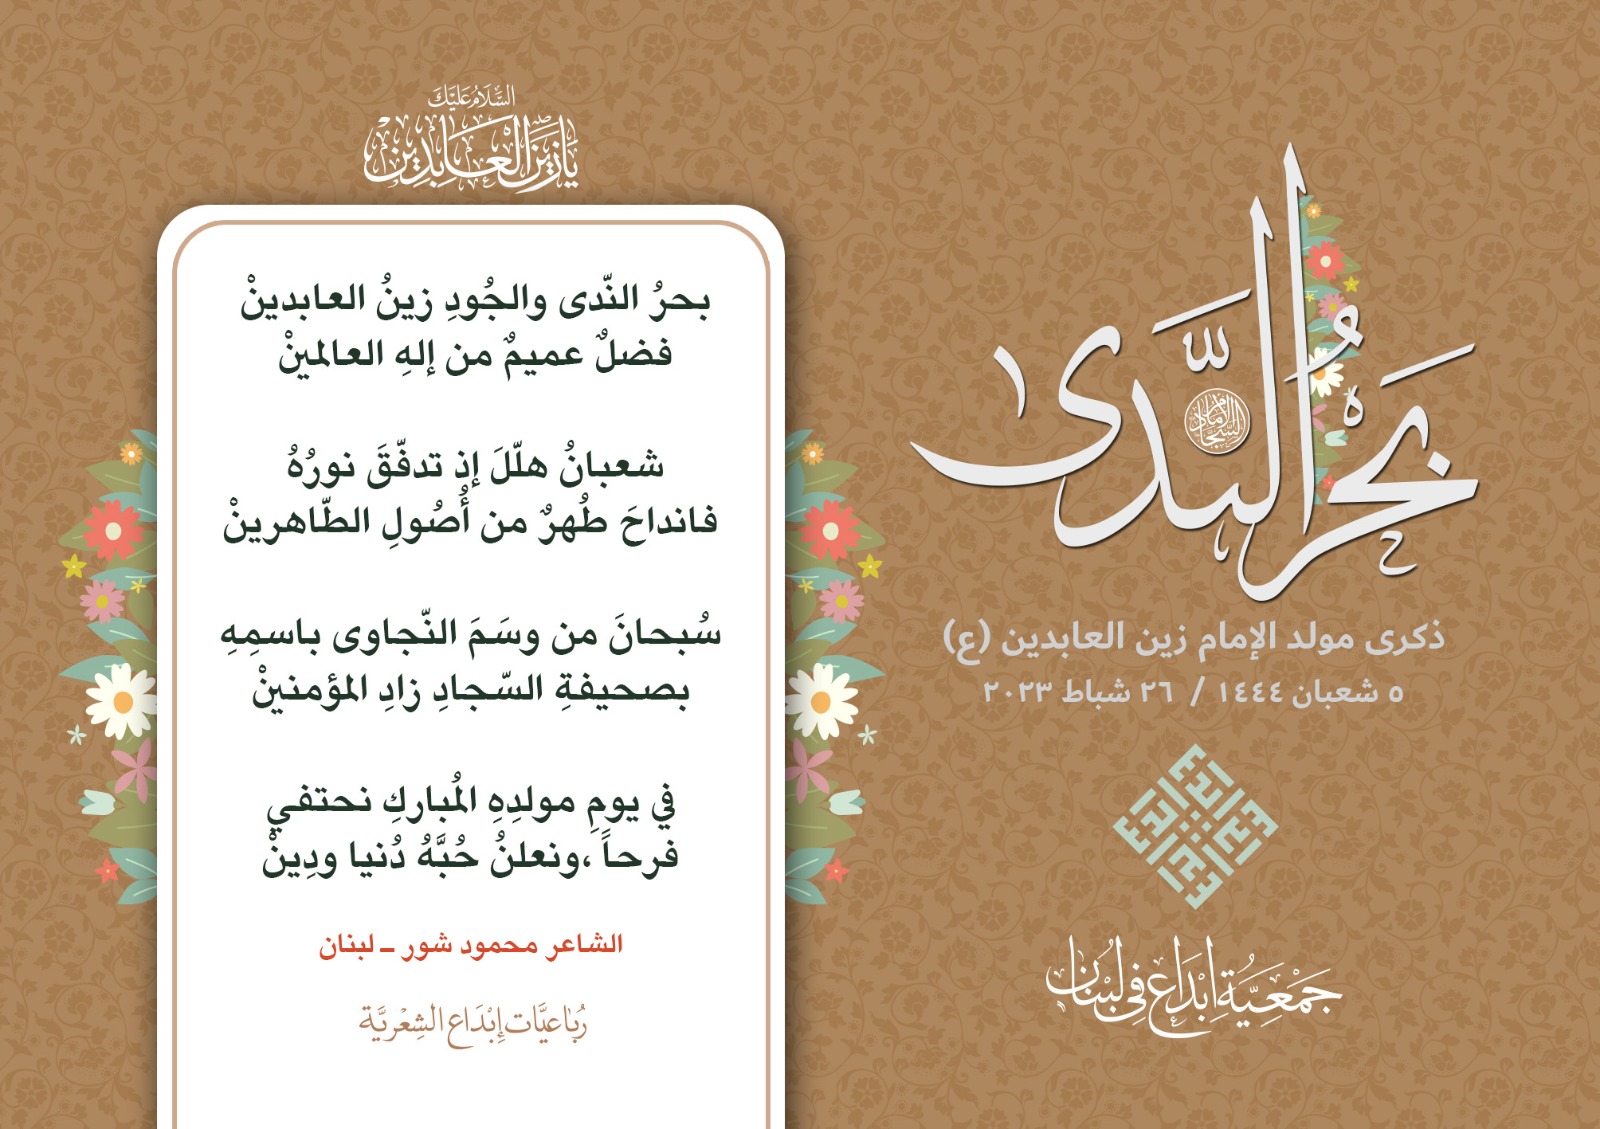 بحرُ النّدى
الإمام السجاد
ذكرى مولد الإمام زين العابدين (ع)
٥ شعبان ١٤٤٤ / ٢٦ شباط ٢٠٢٣
إبداع
جَمْعِيَّة إِبْدَاع فِي لُبْنَان
السَّلَامُ عَلَيْكَ
يَا زَيْنَ الْعَابِدِين
بحرُ النّدى والجُودِ زينُ العابدينْ
فضلٌ عميمٌ من إلهِ العالمينْ
شعبانُ هلّلَ إذ تدفّقَ نورُهُ
فانداحَ طُهرٌ من أُصُولِ الطّاهرينْ
سُبحانَ من وسَمَ النّجاوى باسمِهِ
بصحيفةِ السّجادِ زادِ المؤمنينْ
في يومِ مولدِهِ المُباركِ نحتفي
فرحاً ،ونعلنُ حُبَّهُ دُنيا ودِينْ
الشاعر محمود شور ــ لبنان
رُبَاعيَّات إِبْدَاع الشِعْريَّة